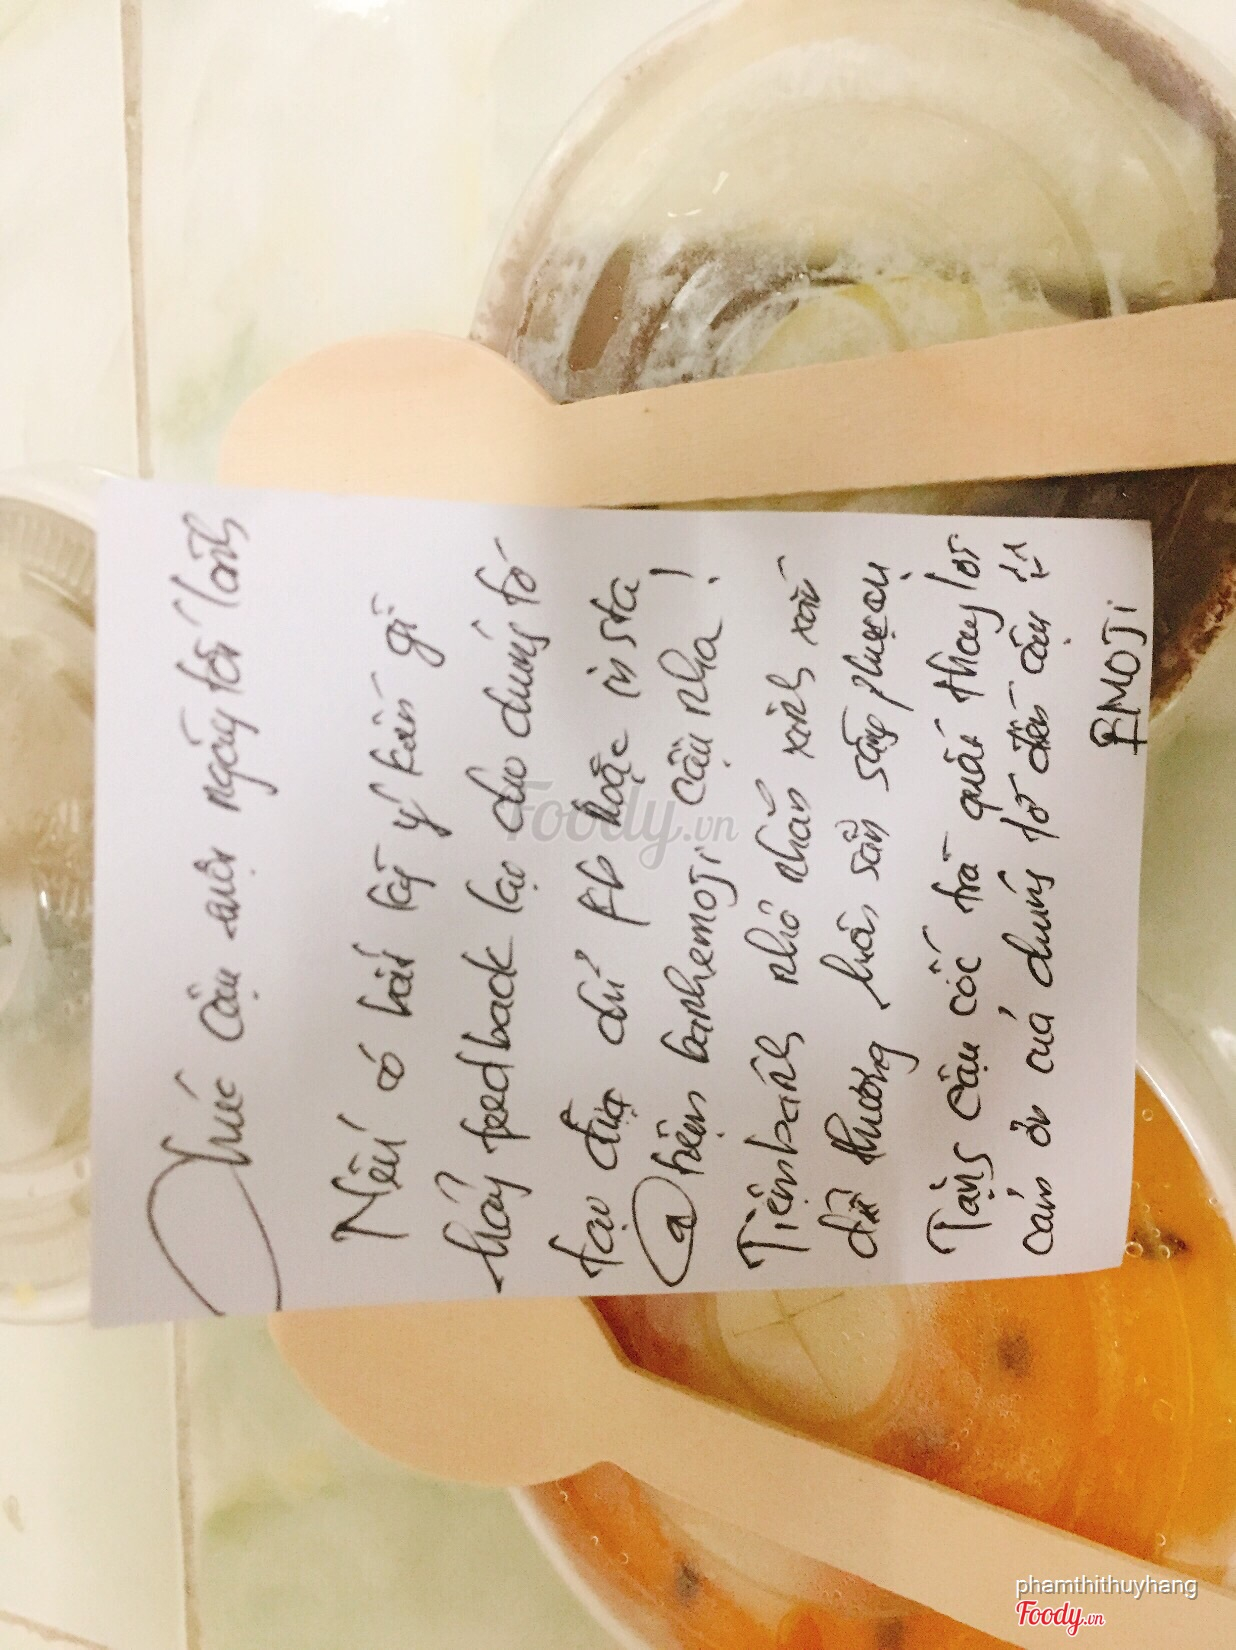 Chúc cậu một ngày tốt lành
Nếu có bất kỳ ý kiến gì
hãy feedback lại cho chúng tớ
tại địa chỉ fb hoặc insta
@tiembanhemoji cậu nha!
Tiệm bánh nhỏ nhắn xinh xắn
dễ thương luôn sẵn sàng phục vụ
Tặng cậu cốc trà quất thay lời
cảm ơn của chúng tớ đến cậu
EMOJI
Foody.vn
phamthithuyhang
Foody.vn